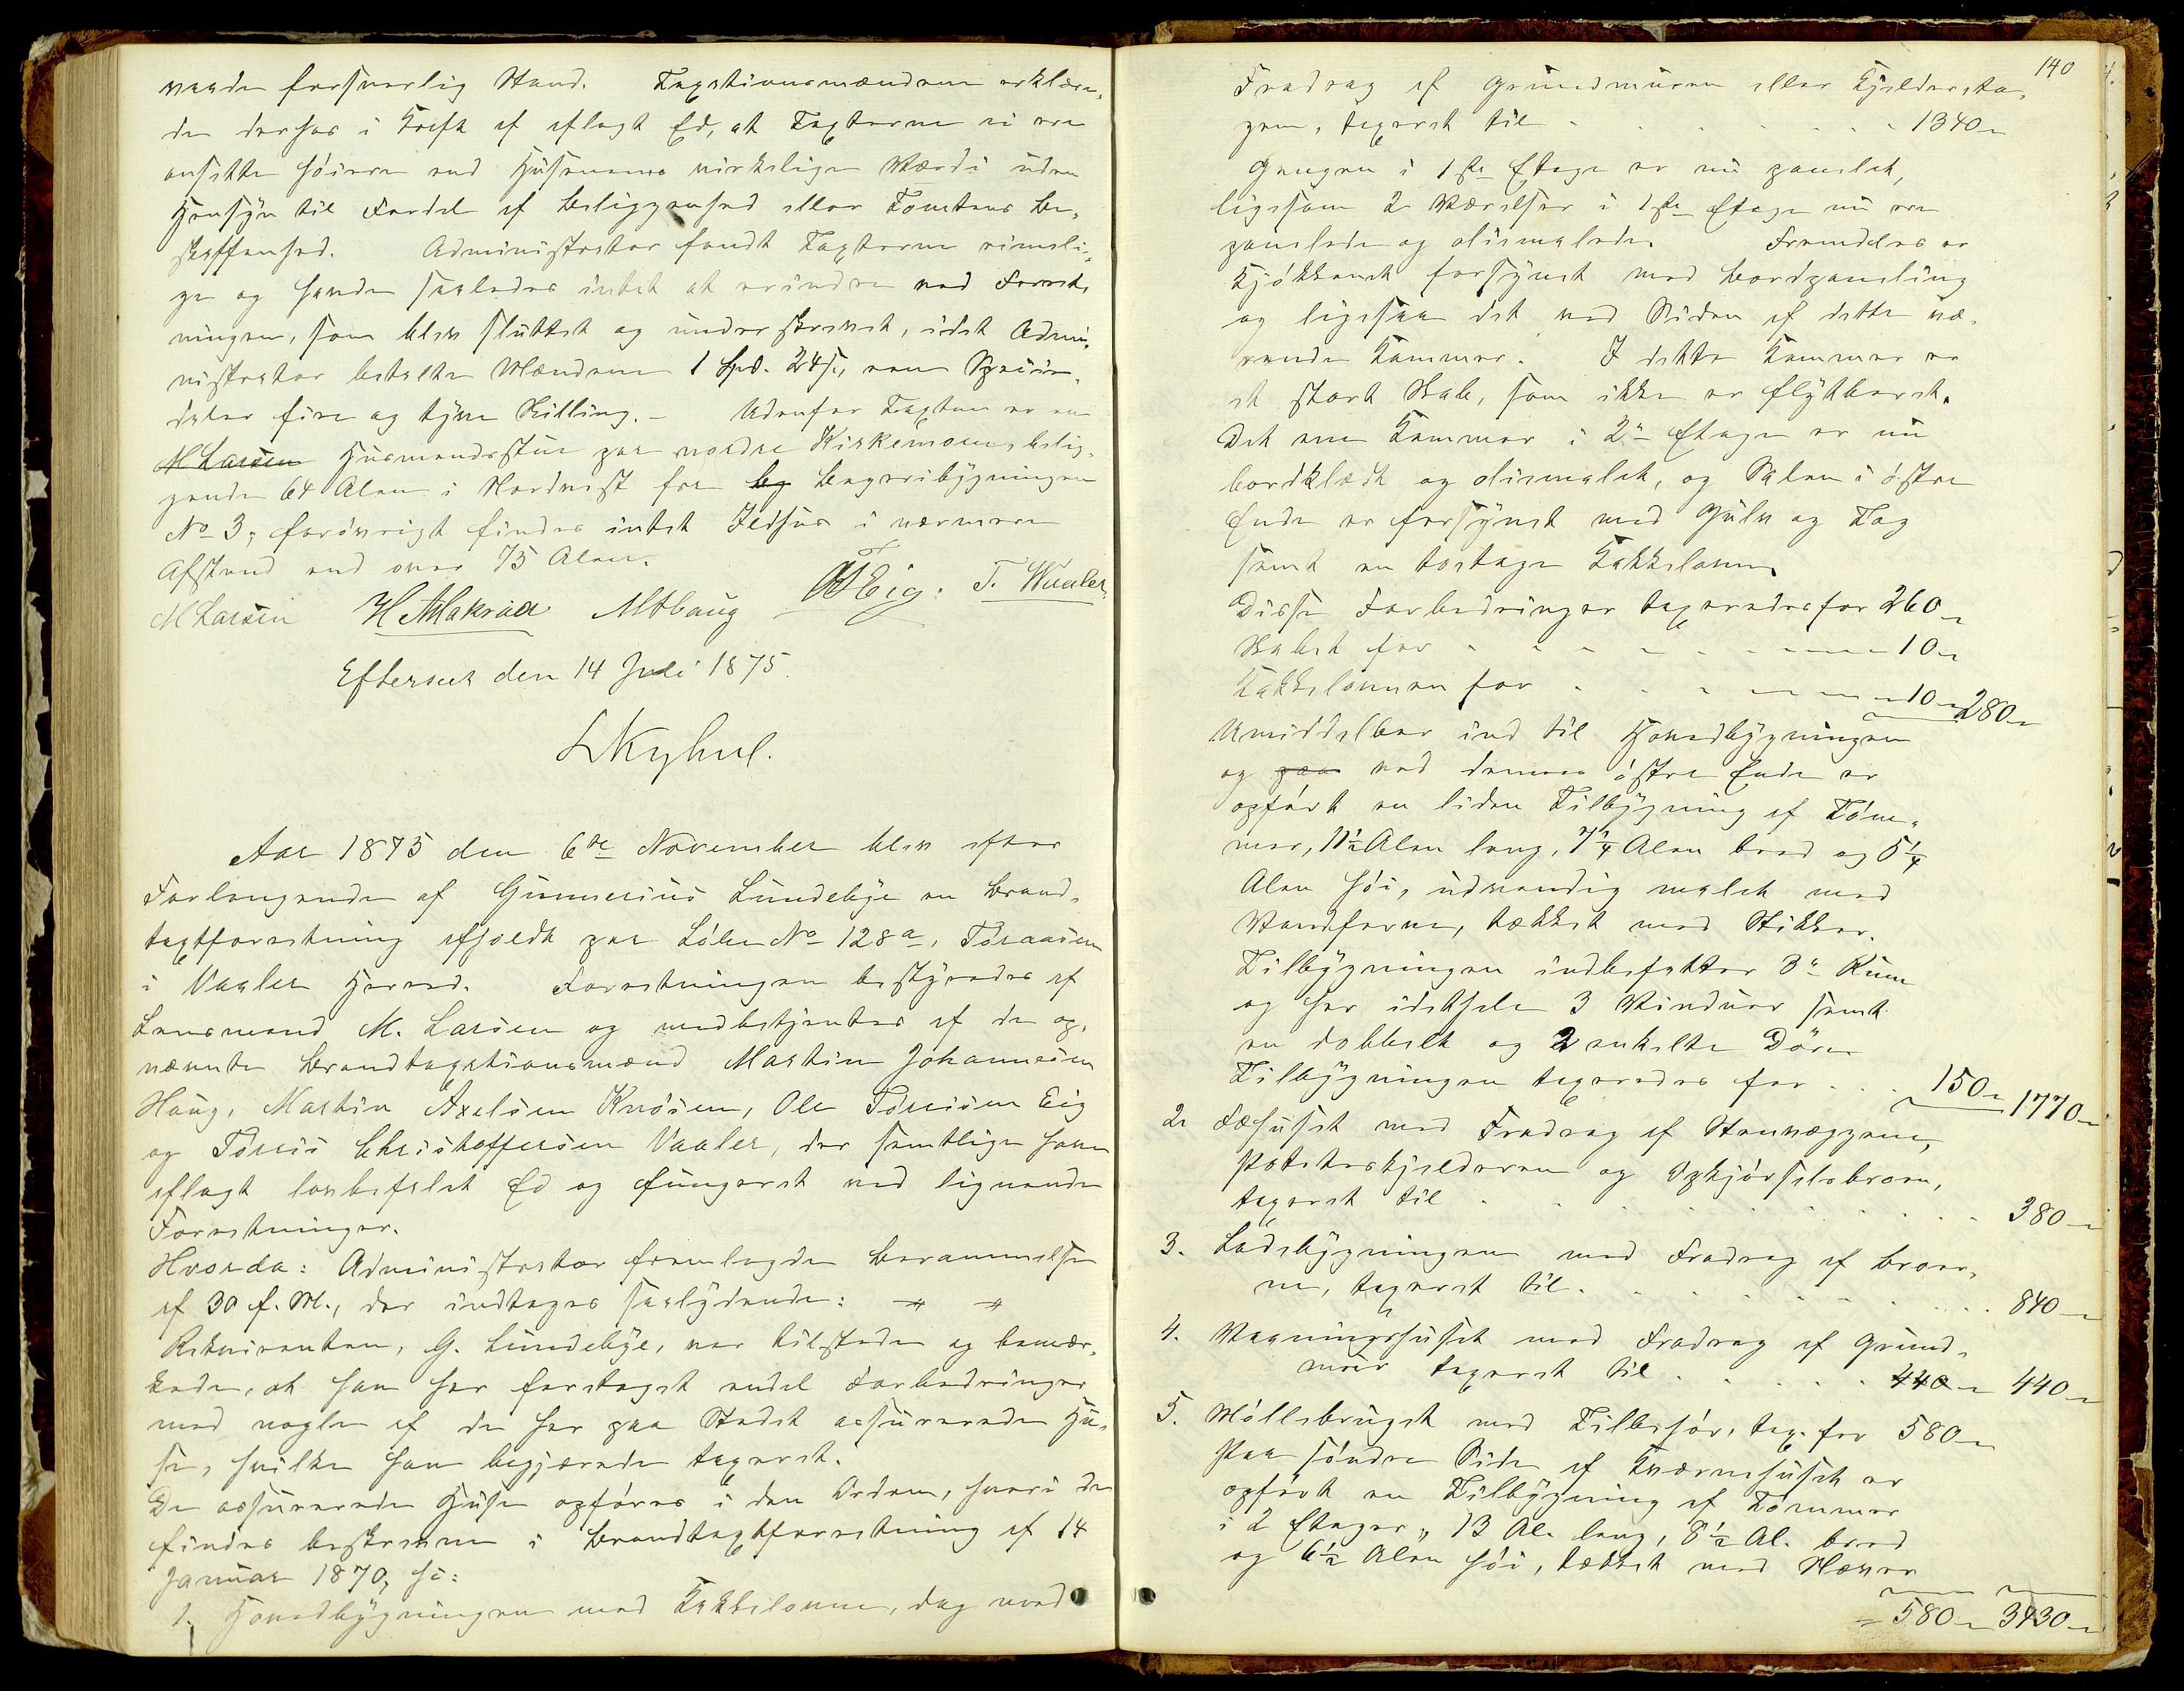 vaade forsvarlig Stand. Taxationsmændene erklære-
de derhos i Kraft af aflagt Ed, at Taxterne ei ere
ansatte høiere end Husenenes virkelige Værdi uden
Hensyn til Fordel af Beliggenhed eller Tomtens Be-
skaffenhed. Administrator fandt Taxterne rimeli-
ge og havde saaledes intet at erindre ved Forret-
ningen, som blev sluttet og underskrevet, idet Admi-
nistrator betalte Mændene 1 Spd. 24 s., een Specie-
daler fire og tyve Skilling. – Udenfor Taxten er en
M Larsen Husmandsstue paa nordre Kirkemoen belig-
gende 64 Alen i Nordvest fra by Bageribygningen
No 3; forøvrigt findes intet Ildhus i nærmere
Afstand end over 75 Alen.
M Larsen H. A. Makrud M Haug O T Eig. T. Vaaler
Efterseet den 14 Juli 1875.
Aar 1875 den 6te November blev efter
Forlangende af Gunnerius Lundebye en Brand-
taxtforretning afholdt paa Løbe No 128a, Toraasen
i Vaaler Herred. Forretningen bestyredes af
Lensmand M. Larsen og medbetjentes af de op-
nævnte Brandtaxationsmænd Martin Johannesen
Haug, Martin Axelsen Knøsen, Ole Torrisen Eig
og Torris Christoffersen Vaaler, der samtlige have
aflagt lovbefalet Ed og fungeret ved lignende
Forretninger.
Hvorda: Administrator fremlagde Berammelse
af 30 f. M., der indtages saalydende: # #
Rekvirenten, G. Lundebye, var tilstede og bemær-
kede, at han har foretaget endel Forbedringer
med nogle af de her paa Stedet assurerede Hu-
se, hvilke han begjærede taxeret.
De assurerede Huse opføres i den Orden, hvori de
findes beskrevne i Brandtaxtforretning af 14
Januar 1870, h:
1. Hovedbygningen med Kakkelovne, dog med
140
Fradrag af Grundmuren eller Kjelderéta-
gen, taxeret til . . . . . 1340 „
Gangen i 1ste Etage er nu panelet,
ligesom 2 Værelser i 1ste Etage nu ere
panelede og oliemalede. Fremdeles er
Kjøkkenet forsynet med Bordpaneling
og ligesaa det ved Siden af dette væ-
rende Kammer. I dette Kammer er
et stort Skab, som ikke er flytbart.
Det ene Kammer i 2n Etage er nu
bordklædt og oliemalet, og Salen i østre
Ende er forsynet med Gulv og Tag
samt en toetages Kakkelovn.
Disse Forbedringer taxeredes for 260 „
Skabet for . . . . . 10 „
Kakkelovnen for . . . . . 10 „ 280 „
Umiddelbar ind til Hovedbygningen
og paa ved dennes østre Ende er
opført en liden Tilbygning af Tøm-
mer, 11½ Alen lang, 7¼ Alen bred og 5¼
Alen høi, udvendig malet med
Vandfarve, tækket med Stikker.
Tilbygningen indbefatter 3 Rum
og har idethele 3 Vinduer samt
en dobbelt og 2 enkelte Døre
Tilbygningen taxeredes for . . . 150 „ 1770 „
2. Fæhuset med Fradrag af Stenvæggene,
Poteteskjelderen og Opkjørselsbroen,
taxeret til . . . . . 380 „
3. Ladebygningen med Fradrag af Broer-
ne, taxeret til . . . . . 840 „
4. Vaaningshuset med Fradrag af Grund-
muur taxeret til . . . . . 440 „ 440 „
5. Møllebruget med Tilbehør, tax. for 580 „
Paa søndre Side af Kværnehuset er
opført en Tilbygning af Tømmer
i 2 Etager, 13 Al. lang, 8½ Al. bred
og 6½ Alen høi, tækket med Høvre
„ 580 „ 3430 „